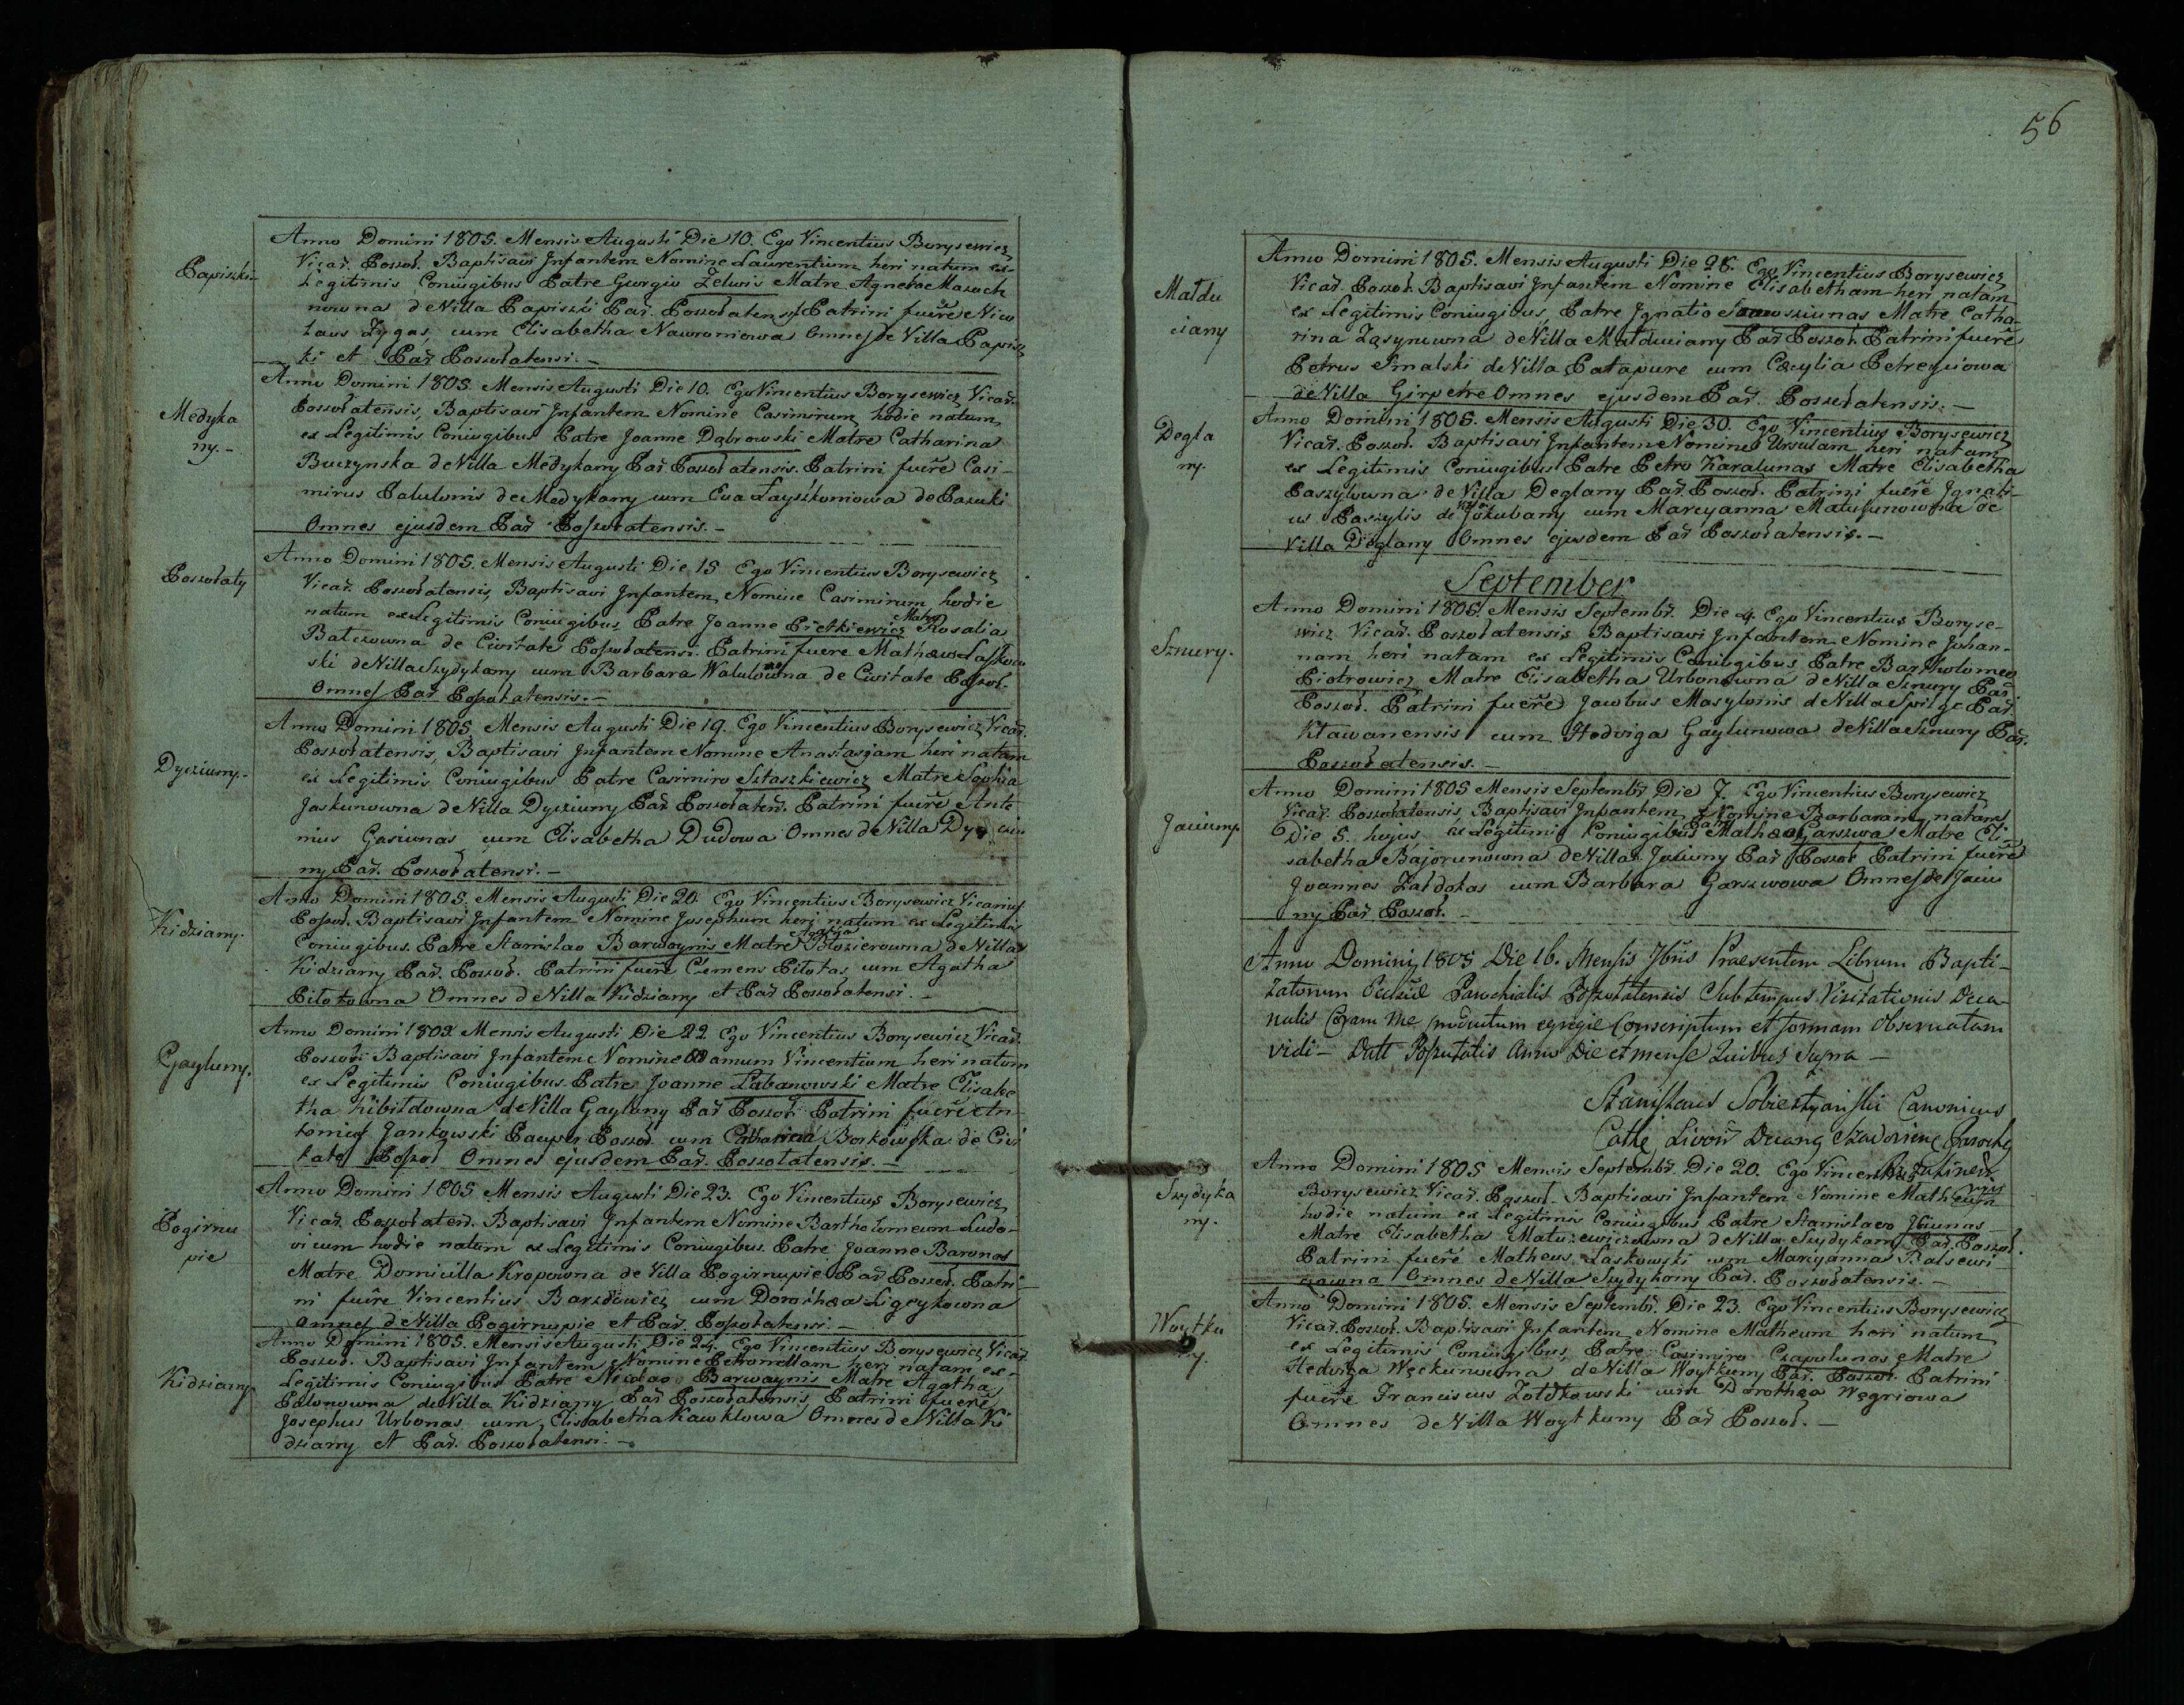 Papiszki
Anno Domini 1805. Mensis Augusti Die 10. Ego Vincentius Borysewicz
Vicař. Poszoł. Baptisavi Infantem Nomine Laurentium heri natum ex
Legitimis Coniugibus Patre Georgio Zelwis Matre Agneta Mazach
nowna de Villa Papiszki Pař. Poszołatensi Patrini fueře Nico
laus Zygas, cum Elisabetha Nawroniowa Omnes de Villa Papisz
ki et Pař Poszołatensi.-
Medyka
ny.-
Anno Domini 1805. Mensis Augusti Die 10. Ego Vincentius Borysewicz Vicař.
Poszołatensis, Baptisavi Infantem Nomine Casimirum, hodie natum,
ex Legitimis Coniugibus Patre Joanne Dąbrowski Matre Catharina
Buczynska de Villa Medykany Pař Poszołatensis. Patrini fueře Casi-
mirus Palulonis de Medykany cum Eva Łayszkoniowa de Pazuki
Omnes ejusdem Pař Poszołatensis.-
Poszołaty
Anno Domini 1805. Mensis Augusti Die 15 Ego Vincentius Borysewicz
Vicař. Poszołatensis, Baptisavi Infantem, Nomine Casimirum hodie
natum ex Legitimis Coniugibus Patre Joanne Pietkiewicz Matre Rosalia
Balczowna de Civitate Poszołatensi. Patrini fuere Mathaeus Laskow
ski de Villa Szydykany cum Barbara Walulowna de Civitate Poszoł.
Omnes Pař Poszołatensis.-
Dycziuny.-
Anno Domini 1805. Mensis Augusti Die 19. Ego Vincentius Borysewicz Vicař.
Poszołatensis, Baptisavi Infantem Nomine Anastasjam heri natam
ex Legitimis Coniugibus Patre Casimiro Sztaszkiewicz Matre Sophia
Jaskunowna de Villa Dycziuny Pař Poszołateň. Patrini fueře Anto
nius Gasiunas cum Elisabetha Dudowa Omnes de Villa Dycziu
ny Pař. Poszołatensi.-
Kidziany.
Anno Domini 1805. Mensis Augusti Die 20. Ego Vincentius Borysewicz Vicarius
Poszoł. Baptisavi Infantem Nomine Josephum heri natum ex Legitimis
Coniugibus. Patre Stanislao Barwoynis Matre Agatha Błozierowna de Villa
Kidziany Pař. Poszoł. Patrini fueře Clemens Piłotas cum Agatha
Piłotowna Omnes de Villa Kidziany et Pař Poszołatensi.-
Gayluny.
Anno Domini 1805 Mensis Augusti Die 22 Ego Vincentius Borysewicz Vicař.
Poszoł. Baptisavi Infantem Nomine Adamum Vincentium, heri natum
ex Legitimis Coniugibus. Patre Joanne Łabanowski Matre Elisabe
tha Kibiłdowna de Villa Gayluny Pař Poszoł Patrini fueře An-
tonius Jankowski Pauper Poszoł. cum Catharina Borkowska de Civi
tate Poszoł Omnes ejusdem Pař. Poszołatensis.-
Pogirnu
pie
Anno Domini 1805 Mensis Augusti Die 23. Ego Vincentius Borysewicz
Vicař. Poszołateň. Baptisavi Infantem Nomine Bartholomeum Ludo-
vicum hodie natum ex Legitimis Coniugibus. Patre Joanne Baronas
Matre Domicilla Kropowna de Villa Pogirnupie Pař Poszoł. Patri-
ni fueře Vincentius Barzdowicz cum Dorothaea Ligeykowna
Omnes de Villa Pogirnupie et Pař. Poszołatensi.-
Kidziany
Anno Domini 1805. Mensis Augusti Die 24. Ego Vincentius Borysewicz Vicař
Poszoł. Baptisavi Infantem, Nomine Petronellam heri natam ex
Legitimis Coniugibus Patre Nicolao Barwaynis Matre Agatha
Polonowna de Villa Kidziany Pař Poszołatensis, Patrini fuere
Josephus Urbonas cum Elisabetha Kawklowa Omnes de Villa Ki
dziany et Pař. Poszołatensi.-
56
Małdu
ciany
Anno Domini 1805. Mensis Augusti Die 28. Ego Vincentius Borysewicz
Vicař. Poszoł. Baptisavi Infantem Nomine Elisabetham heri natam
ex Legitimis Coniugibus, Patre Ignatio Matre Catha-
rina Zasynowna de Villa Małduciany Pař Poszoł. Patrini fueře
Petrus Smalski de Villa Patapure cum Caecylia Petreyciowa
de Villa Girpetre Omnes ejusdem Pař. Poszołatensis.-
Degla
ny.
Anno Domini 1805. Mensis Augusti Die 30. Ego Vincentius Borysewicz
Vicař. Poszoł. Baptisavi Infantem Nomine Ursulam heri natam
ex Legitimis Coniugibus Patre Petro Karalunas Matre Elisabetha
Paszylowna de Villa Deglany Pař. Poszoł. Patrini fueře Ignati-
us Paszylis de Jokubany cum Maryanna Matusunowna de
Villa Deglany Omnes ejusdem Pař Poszołatensis.-
September
Sznury.
Anno Domini 1805. Mensis Septembř. Die 4. Ego Vincentius Boryse-
wicz Vicař. Poszołatensis Baptisavi Infantem Nomine Johan-
nam heri natam ex Legitimis Coniugibus Patre Bartholomeo
Piotrowicz Matre Elisabetha Urbonowna de Villa Sznury Pař
Poszoł. Patrini fueře Jacobus Masylonis de Villa Spilge Pař.
Ktawanensis cum Hedviga Gaylunowa de Villa Sznury Pař.
Poszołatensis.-
Jaciuny.
Anno Domini 1805 Mensis Septembř Die 7. Ego Vincentius Borysewicz
Vicař. Poszołatensis, Baptisavi Infantem Nomine Barbaram natam
Die 5. hujus, ex Legitimis Coniugibus Patre Mathaeo Garszwa Matre Eli-
sabetha Bajorunowna de Villa Jaciuny Pař Poszoł Patrini fueře
Joannes Załdokas cum Barbara Garszwowa Omnes de Jaciu
ny Pař Poszoł.-
Anno Domini 1805 Die 16. Mensis 7bris Praesentem Librum Bapti-
zatorum Parochialis Poszołatensis Sub tempus Visitationis Deca-
nalis Coram Me productum egregie Conscriptum et formam observatam
vidi- Datt Poszołatis Anno Die et mense Quibus Supra -
Stanislaus Canonicus
Cathe Livoň Decanus
Szydyka
ny.
Anno Domini 1805 Mensis Septembř. Die 20. Ego Vincentius
Borysewicz Vicař. Poszoł. Baptisavi Infantem Nomine Matheum
hodie natum ex Legitimis Coniugibus Patre Stanislaeo
Matre Elisabetha Matuzewiczowna de Villa Szydykany Pař. Poszoł.
Patrini fueře Matheus Laskowski cum Maryanna Balsewi-
czowna Omnes de Villa Szydykany Pař. Poszołatensis.-
Woytku
ny.
Anno Domini 1805. Mensis Septembř. Die 23. Ego Vincentius Borysewicz
Vicař. Poszoł. Baptisavi Infantem Nomine Matheum heri natum
ex Legitimis Coniugibus, Patre Casimiro Czapulunas Matre
Hedviga Węckunowna de Villa Woytkuny Pař. Poszoł. Patrini
fueře Franciscus Zołdkowski cum Dorothea Węgriowa
Omnes de Villa Woytkuny Pař Poszoł.-